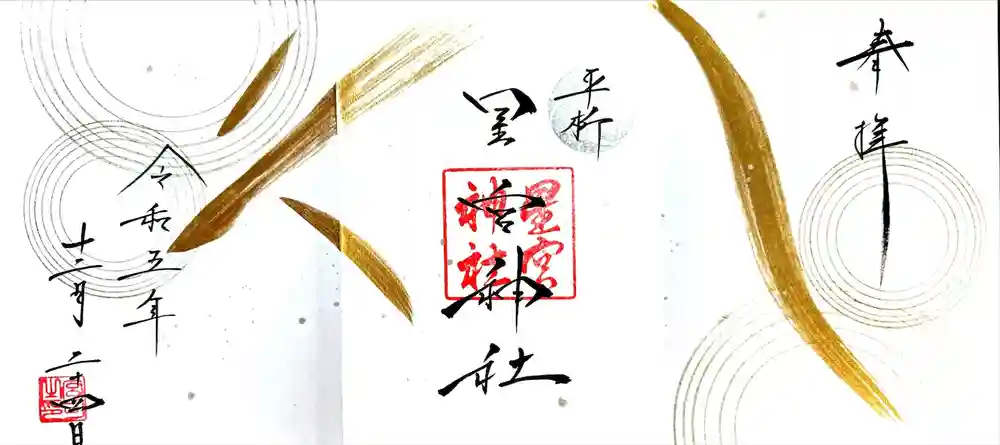 奉拝
平柳
星宮神社
星宮
神社
令和五年
十二月
二十四日